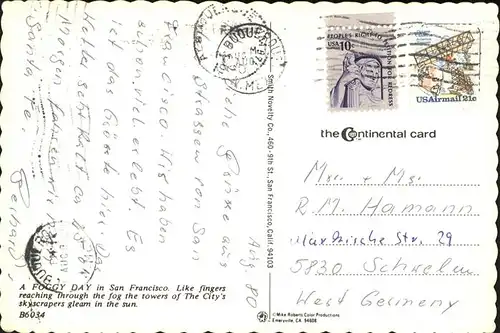 Aug. 80
Liebe Grüsse aus
Strassen von San
Francisco. Wir haben
schon viel erlebt. Es
ist das Größte hier.
Heute seit Halt in
Morgen fahren wir
Santa Fe.
Gerhard
Smith Novelty Co., 460-9th St., San Francisco, Calif. 94103
ALBUQUERQUE
N. MEX.
PEOPLE'S RIGHT TO PETITION FOR REDRESS
USA 10c
USAirmail 21c
the Continental card
Mr. + Ms.
R.M. Hamann
Märkische Str. 29
5830 Schwelm
West Germany
A FOGGY DAY in San Francisco. Like fingers
reaching through the fog the towers of The City's
skyscrapers gleam in the sun.
B6034
© Mike Roberts Color Productions
Emeryville, CA. 94608